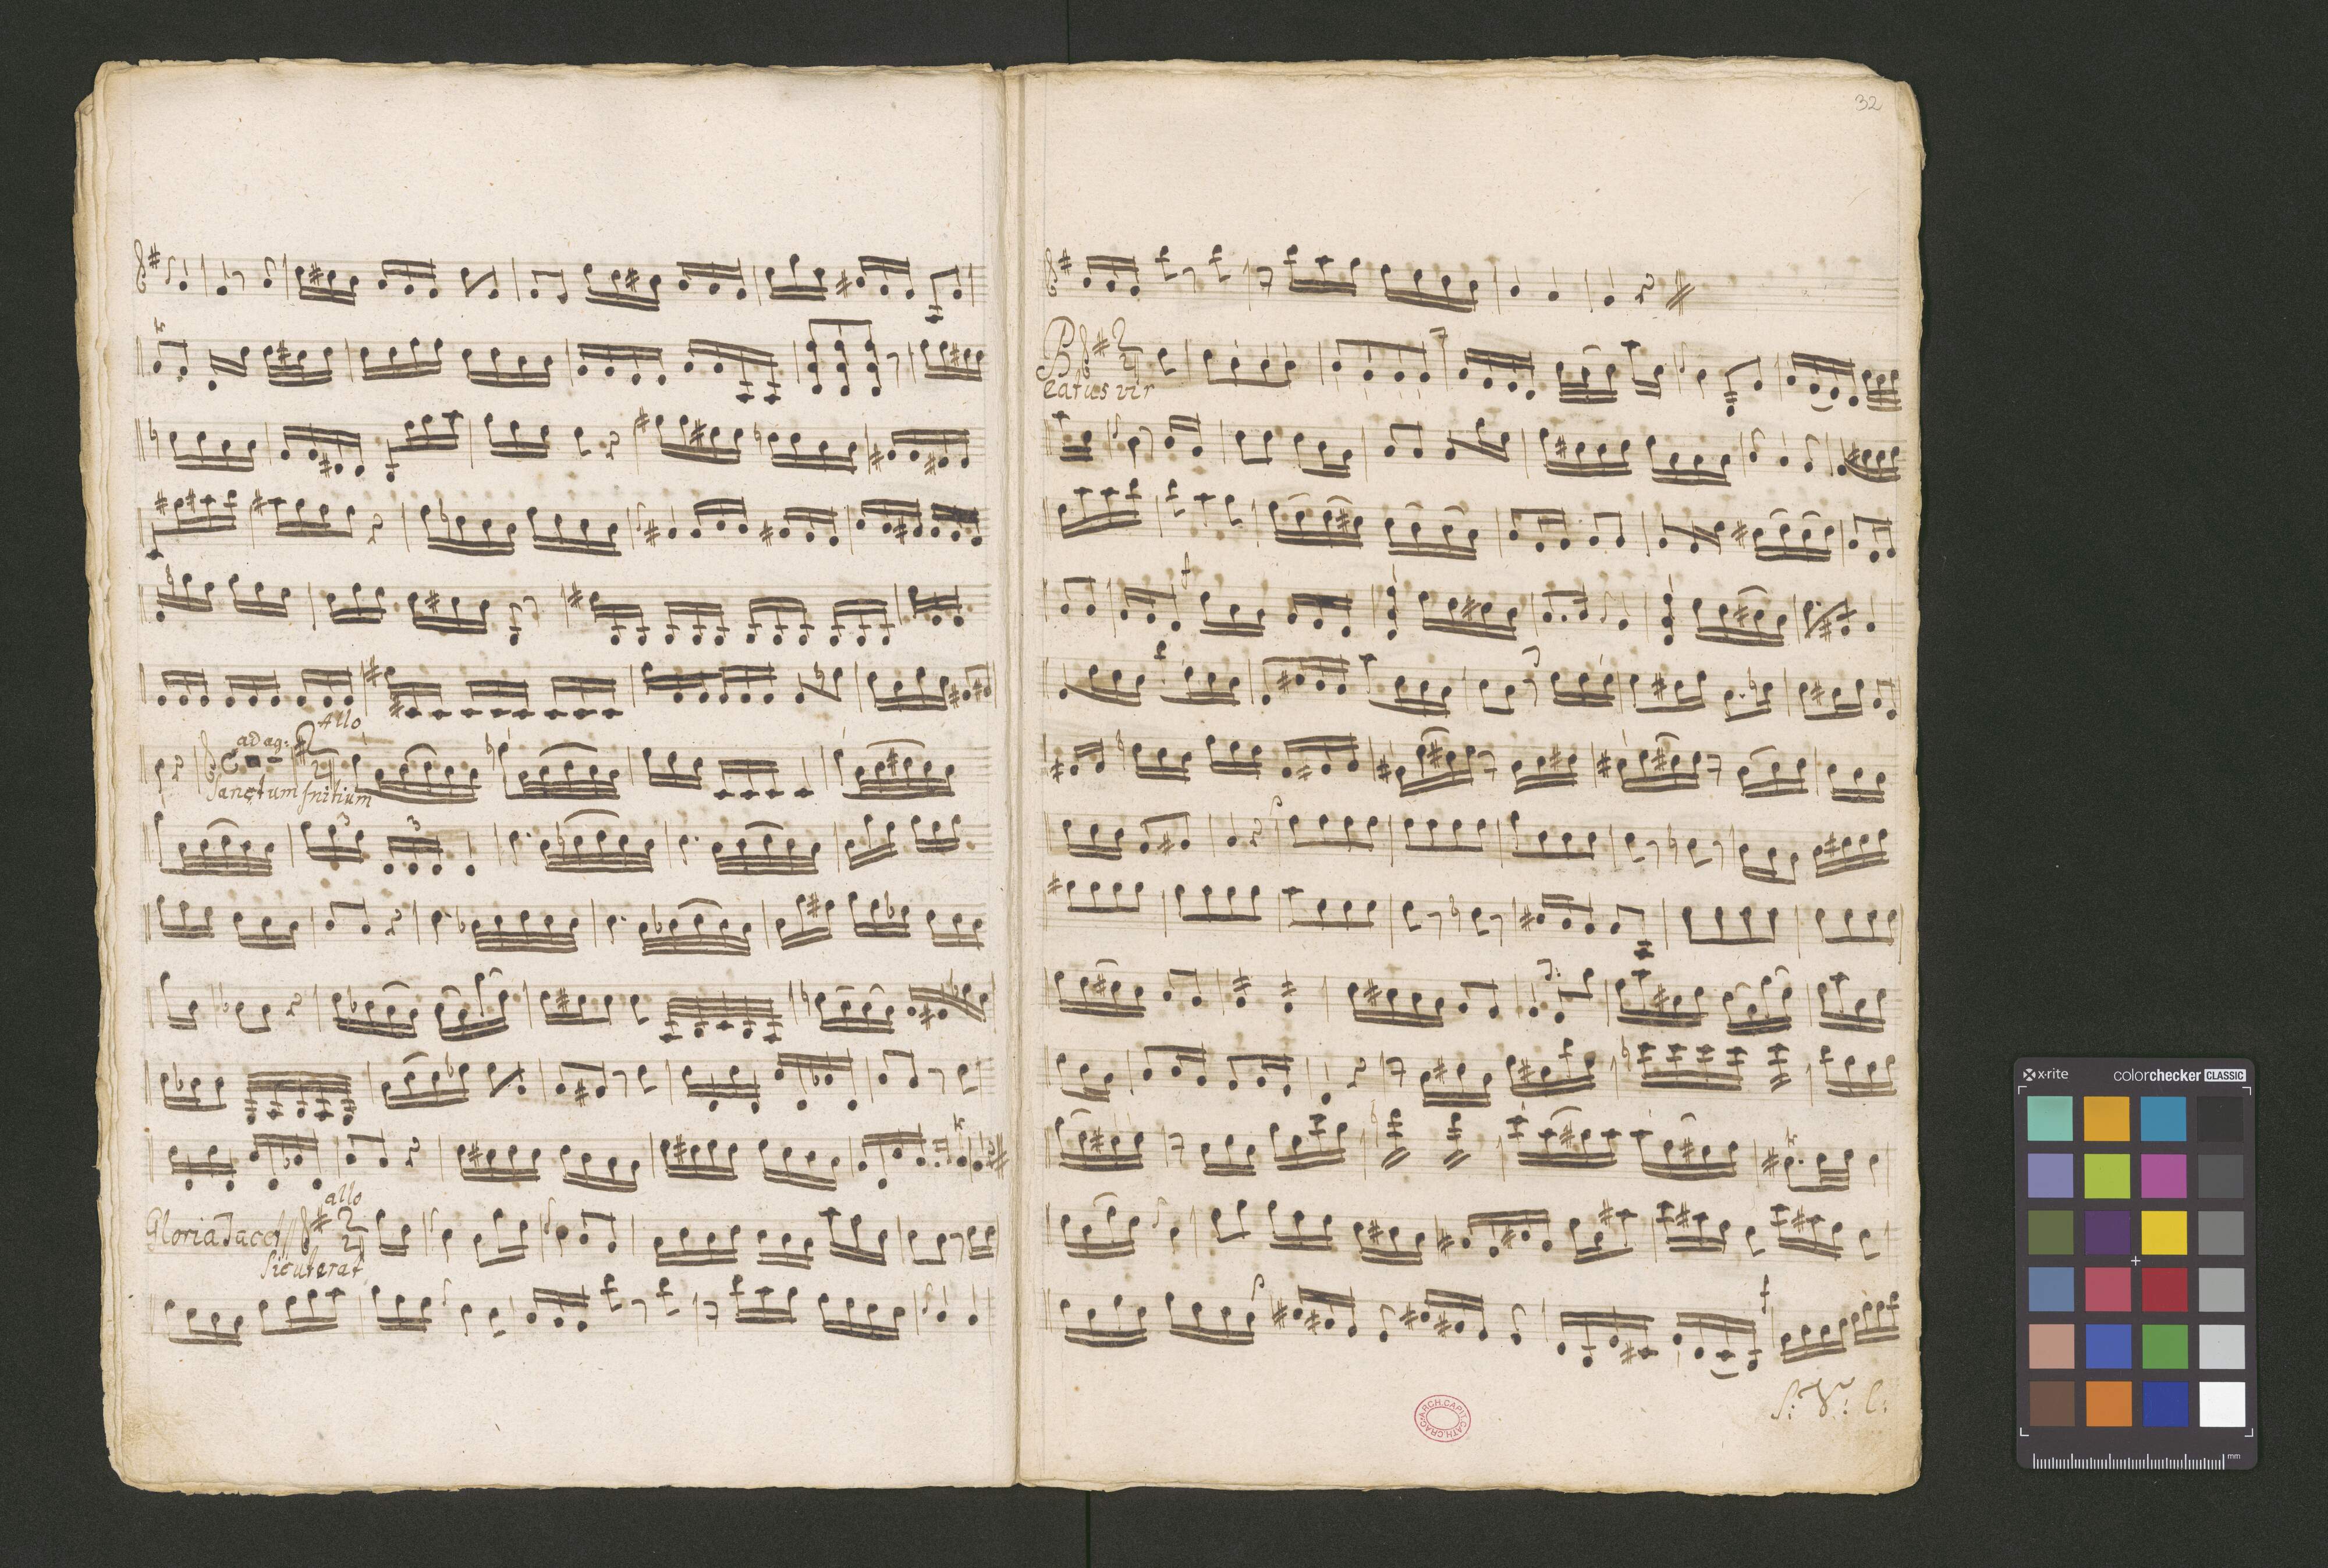 Allo
adag:
Sanctum Initium
3 3
allo
Gloria Tacet
Sicut erat
32
Beatus vir
f
f
S: V: C:
ARCH. CAPIT. CATH. CRAC.
x-rite
colorchecker CLASSIC
mm